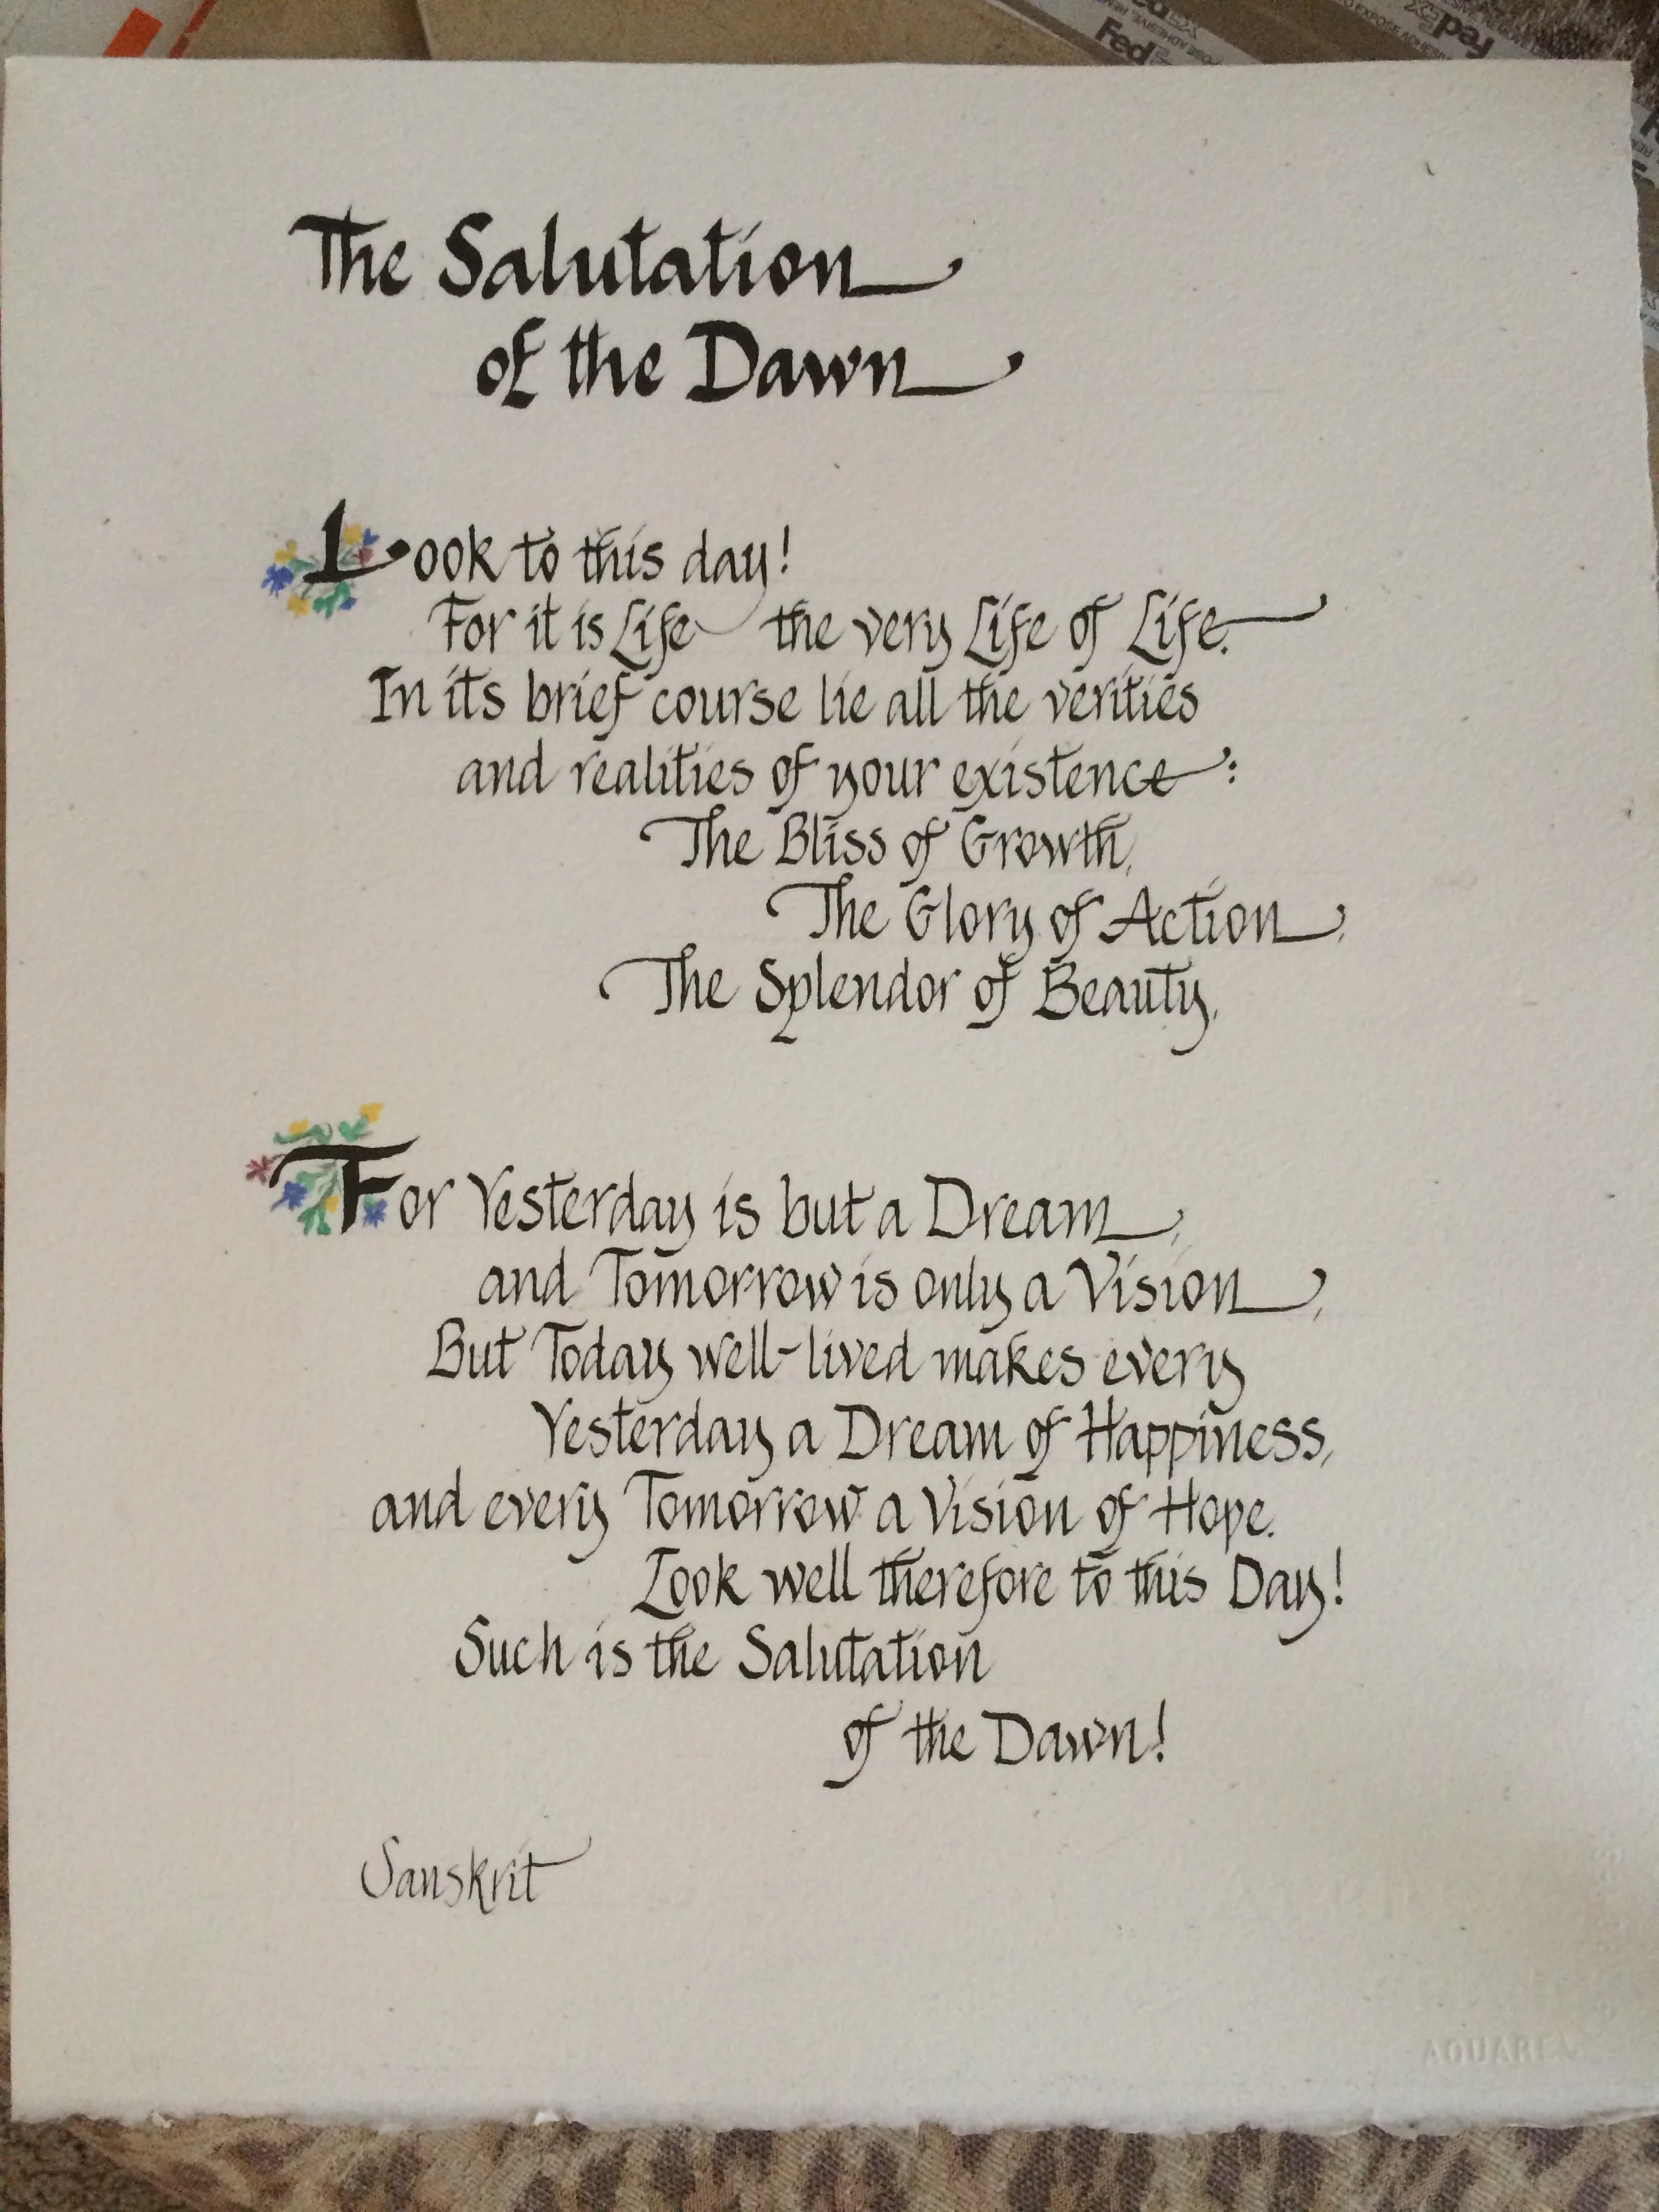 Fed
FedEx
The Salutation
of the Dawn
Look to this day!
For it is Life the very Life of Life.
In its brief course lie all the verities
and realities of your existence:
The Bliss of Growth,
The Glory of Action,
The Splendor of Beauty,
For Yesterday is but a Dream,
and Tomorrow is only a Vision,
But Today well-lived makes every
Yesterday a Dream of Happiness,
and every Tomorrow a Vision of Hope.
Look well therefore to this Day!
Such is the Salutation
of the Dawn!
Sanskrit